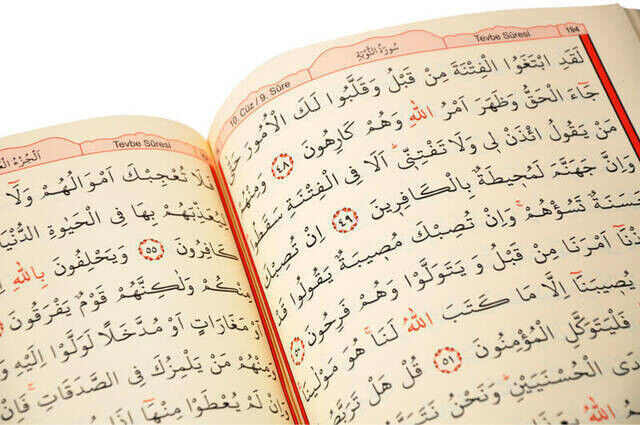 10. Cüz / 9. Sûre سُورَةُ التَّوْبَةِ Tevbe Sûresi 194
لَقَدِ ابْتَغَوُا الْفِتْنَةَ مِنْ قَبْلُ وَقَلَّبُوا لَكَ الْاُمُورَ
جَٓاءَ الْحَقُّ وَظَهَرَ اَمْرُ اللّٰهِ وَهُمْ كَارِهُونَ ﴿٤٨﴾ وَمِنْهُمْ
مَنْ يَقُولُ ائْذَنْ ل۪ي وَلَا تَفْتِنّ۪ي اَلَا فِي الْفِتْنَةِ سَقَطُوا
وَاِنَّ جَهَنَّمَ لَمُح۪يطَةٌ بِالْكَافِر۪ينَ ﴿٤٩﴾ اِنْ تُصِبْكَ
حَسَنَةٌ تَسُؤْهُمْ وَاِنْ تُصِبْكَ مُص۪يبَةٌ يَقُولُوا
اَمْرَنَا مِنْ قَبْلُ وَيَتَوَلَّوْا وَهُمْ فَرِحُونَ ﴿٥٠﴾
يُص۪يبَنَٓا اِلَّا مَا كَتَبَ اللّٰهُ لَنَا هُوَ مَوْلٰينَا
فَلْيَتَوَكَّلِ الْمُؤْمِنُونَ ﴿٥١﴾ قُلْ هَلْ
الْحُسْنَيَيْنِ وَنَحْنُ
اللّٰهُ
اَلْجُزْءُ Tevbe Sûresi
فَلَا تُعْجِبْكَ اَمْوَالُهُمْ وَلَٓا
لِيُعَذِّبَهُمْ بِهَا فِي الْحَيٰوةِ الدُّنْيَا
كَافِرُونَ ﴿٥٥﴾ وَيَحْلِفُونَ بِاللّٰهِ
مِنْكُمْ وَلٰكِنَّهُمْ قَوْمٌ يَفْرَقُونَ
اَوْ مَغَارَاتٍ اَوْ مُدَّخَلًا لَوَلَّوْا اِلَيْهِ
مَنْ يَلْمِزُكَ فِي الصَّدَقَاتِ فَاِنْ
وَاِنْ لَمْ يُعْطَوْا مِنْهَٓا اِذَا